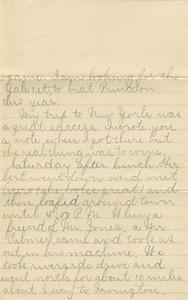 game. I am looking for the
Yale ist to beat Princeton
this year.
My trip to New York was
a great success. I wrote you
a note when I got there but
the real thing was to come.
Saturday after lunch Her-
bert went down and met
great) and
then loafed around town
until 4:30 P.M. When
a friend of Mr. Jones, a Mr.
Palmer came and took us
out in his machine. We
took riverside drive and
went north for about 10 miles
about 3/4 way to Irvington.